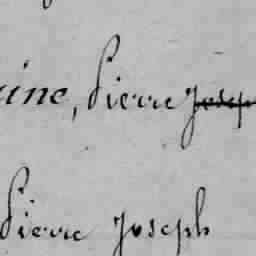 aine, Pierre Josep
Pierre Joseph